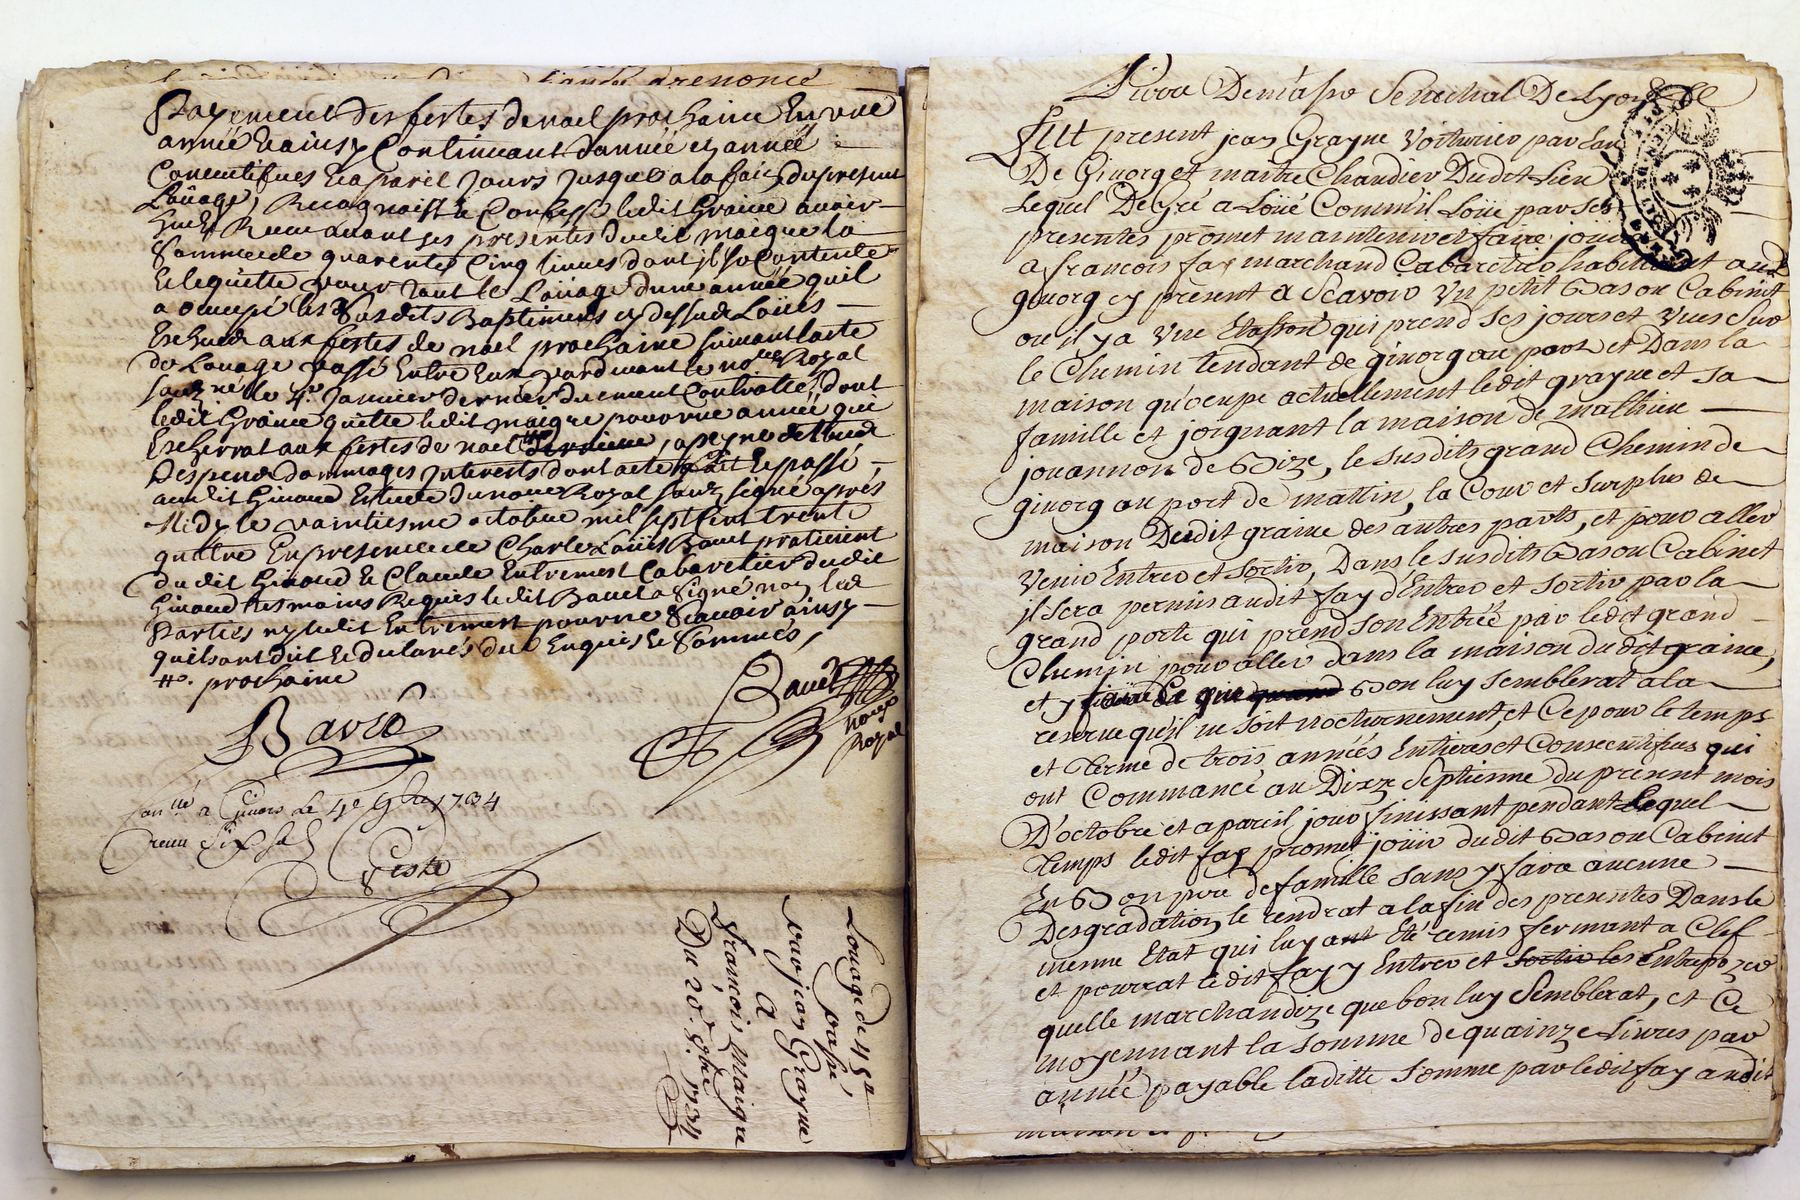 payement des festes de noel prochaine En une
année Et ainsy Continuant d'année en année
Consecutifves Et a pareil Jours Jusques a la fain du present
Loüage, Recognoist Et Confesse ledit Graine avoir
Heu Et Receu avant ces presentes dudit maigre la
Somme de quarente Cinq livres dont il se Contente
Et le quitte pour tout le Loüage d'une année quil
a occupé les Susdits Bastiments cy dessus Loüés
Escheüe aux festes de noel prochaine suivant lacte
de Loüage passé Entre Eux pardevant le nore Royal
souzné le 4e Janvier dernier duement Controllé, dont
ledit Graine quitte ledit maigre pour une année qui
Escherrat aux festes de noel derniere, a peyne de tous
Despens dommages Interests dont acté fait Et passé,
audit Givord Estude du notre Royal souz signé apres
Midy le vaintiesme octobre mil sept Cent trente
quattre En presence de Charle Loüis Bavet praticient
du dit Givord Et Claude Entremont Cabaretier dudit
Givord tesmoins Requis ledit Bavet a Signé non les
Parties ny ledit Entremont pour ne Scavoir ainsy
quils ont dit Et declarés de ce Enquis Et Sommés,
prochaine
Bavet
nore
Royal
a Givors Le 4e 9bre 1734
Receu Six sols
Louage de 45ll
passé,
par jean Grayne
A
François Maigre
Du 20e 8bre 1734
Senechal De Lyon
Fut present jean Grayne Voiturier par Eau
De Givorg et maitre Chandier Dudit Lieu
Lequel De Gré a Loüé Comm'il Loüe par Ses
presentes promet maintenir et faire jouir
a françois fay marchand Cabaretier habitant audt
givorg cy present a Scavoir Un petit Bas ou Cabinet
ou il y a Une qui prend ses jours et Vues sur
le Chemin tendant de givorg au port et Dans la
maison qu'ocupe actuellement ledit grayne et sa
famille et joignant la maison de mathieu
jouannon de Bize, le susdits grand Chemin de
givorg au port de mattin, la Cour et surplus de
maison Dudit graine des autres parts, et pour aller
Venir Entrer et sortir, Dans le susdits Bas ou Cabinet
il sera permis audit fay d'Entrer et sortir par la
grand porte qui prend son Entrée par ledit grand
Chemin pour aller dans la maison du dit graine,
et y Bon luy semblerat a la
reserve qu'il ne soit nocturnement, et Ce pour le temps
et terme de trois années Entieres et Consecutifves qui
ont Commancé au Dix Septienne du present mois
D'octobre et a pareil jour finissant pendant Lequel
temps ledit fay promet joüir dudit Bas ou Cabinet
En Bon pere de famille sans y faire aucune
Desgradation, le rendrat a la fin des presentes Dans le
mesme Etat qui luy ant Eté remis fermant a Clef
et pourrat ledit fay y Entrer et sortir les Entrepozer
quelle marchandize que bon luy Semblerat, et Ce
moyennant la somme de quainze Livres par
année payable laditte somme par ledit fay audit